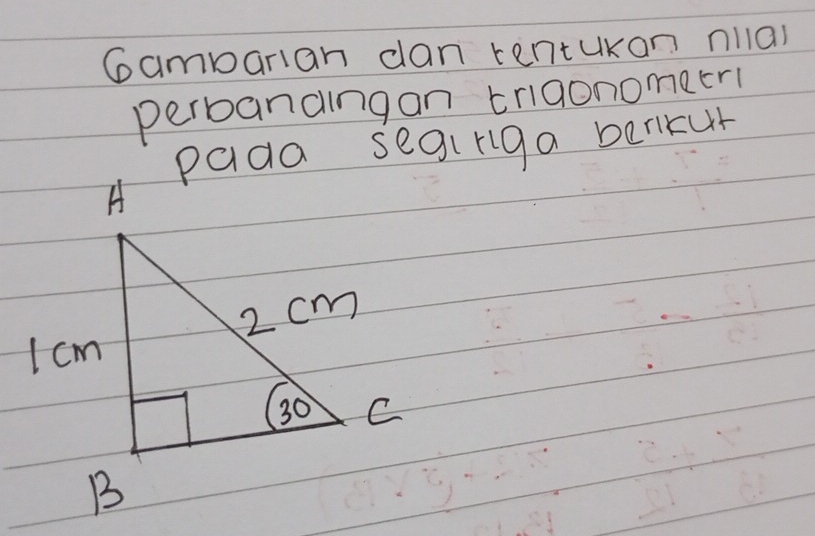 Gambarlah dan tentukan nilai
perbandingan trigonometri
pada segitiga berikut
A
2 cm
1 cm
30
C
B